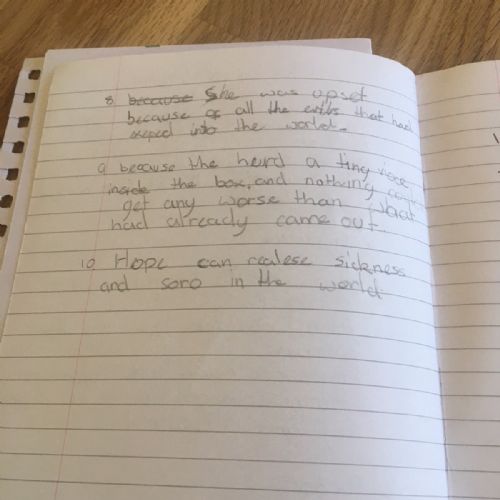 8 because She was upset
because of all the evils that had
exeped into the world.
9 because the herd a tiny voice
inside the box, and nothing
get any worse than what
had already came out.
10 Hope can realese sickness
and soro in the world